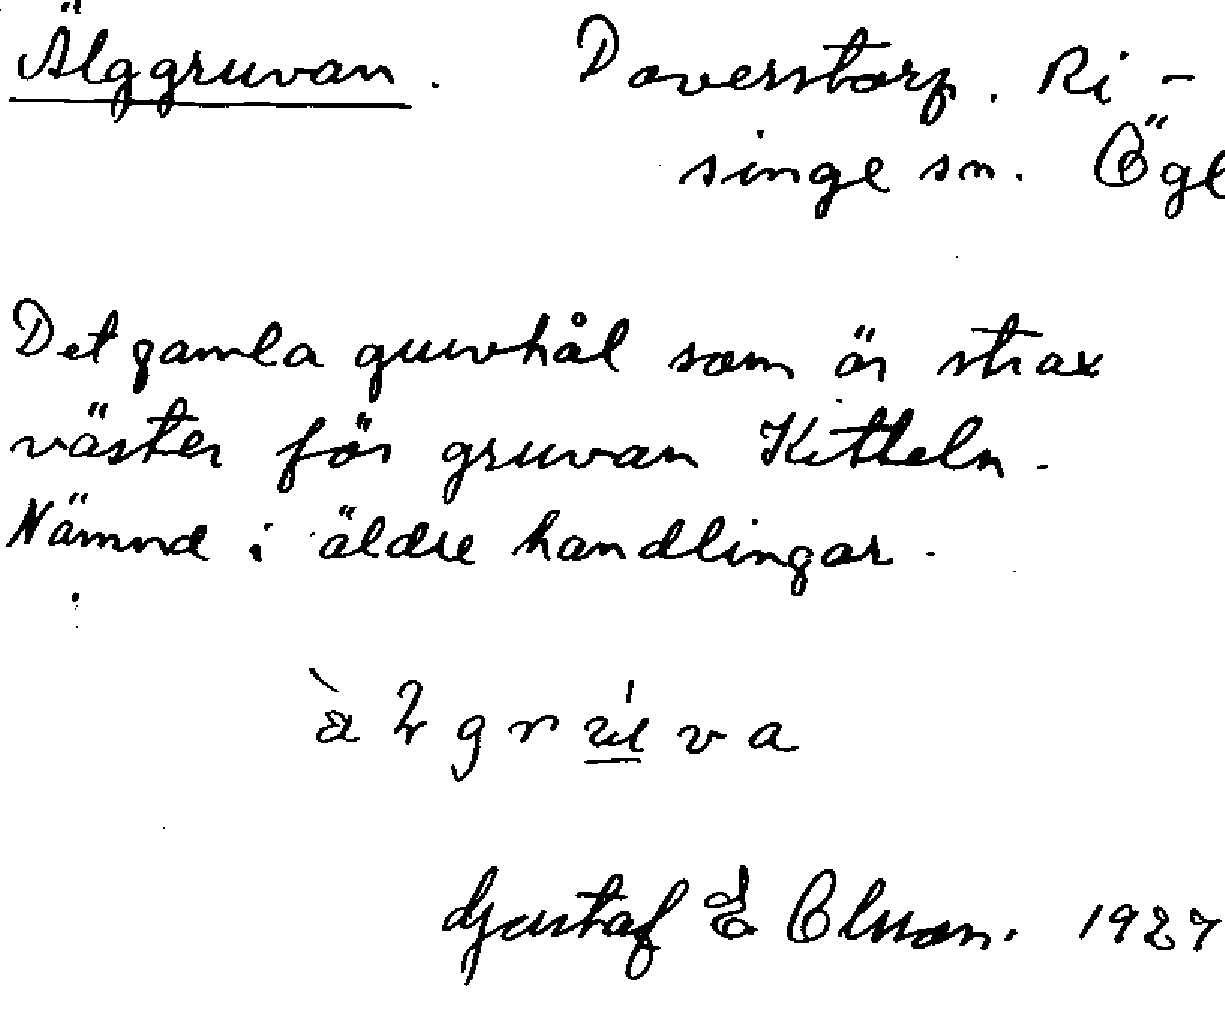 Älggruvan. Doverstorp. Ri-
singe sn. Ögl
Det gamla guvhål som är strax
väster för gruvan Kitteln.
Nämnd i äldre handlingar.
Gustaf Olsson. 1927